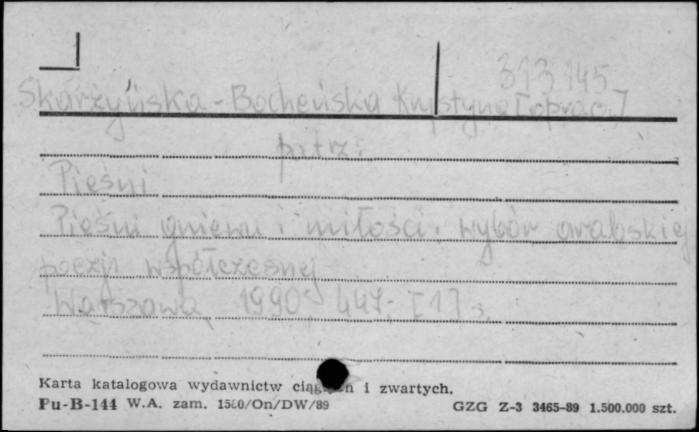 313145
Skarżyńska-Bocheńska Krystyna [oprac.]
patrz:
Pieśni
Pieśni gniewu i miłości: wybór arabskiej
poezji współczesnej
Warszawa, 1990, 447, [1] s.
Karta katalogowa wydawnictw ciągłych i zwartych.
Pu-B-144 W.A. zam. /On/DW/89 GZG Z-3 3465-89 1.500.000 szt.